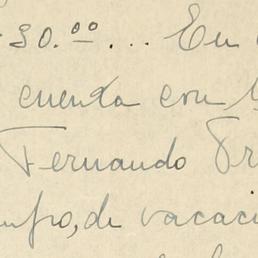 30.00... En
cuenta con
Fernando
de vacaci